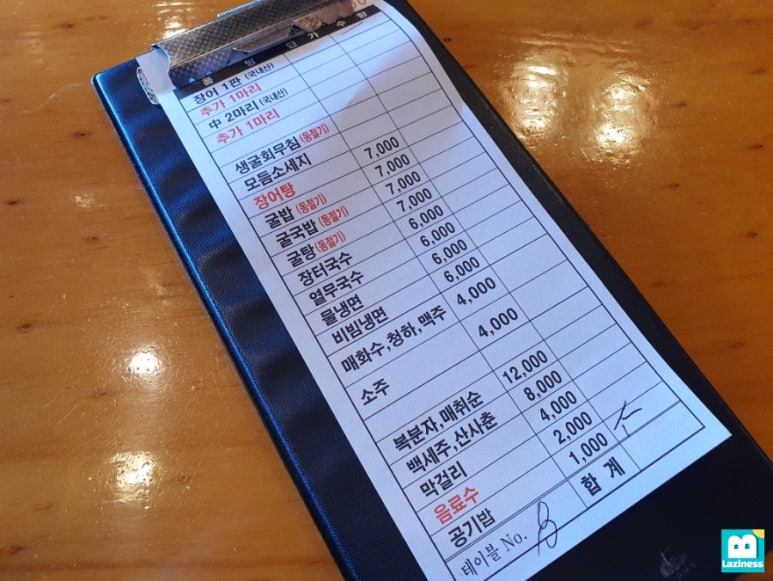 단가 수량
장어 1판 (국내산)
추가 1마리
中 2마리 (국내산)
추가 1마리
생굴회무침 (동절기)
모듬소세지
장어탕 7,000
굴밥 (동절기) 7,000
굴국밥 (동절기) 7,000
굴탕 (동절기) 7,000
장터국수 6,000
열무국수 6,000
물냉면 6,000
비빔냉면 6,000
매화수,청하,맥주 4,000
소주 4,000
복분자,매취순 12,000
백세주,산사춘 8,000
막걸리 4,000
음료수 2,000
공기밥 1,000
합 계
테이블 No. 8
B
Laziness